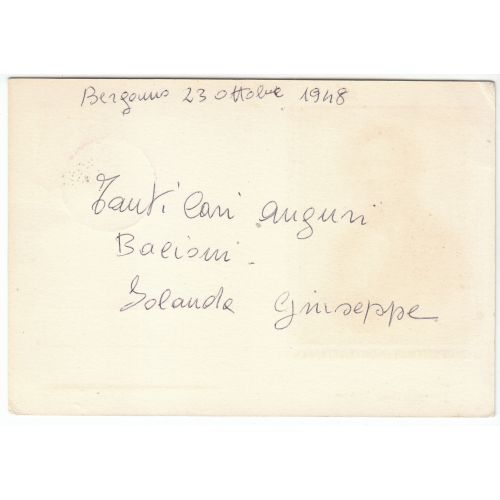 Bergamo 23 ottobre 1948
Tanti cari auguri
Bacioni.
Iolanda Giuseppe